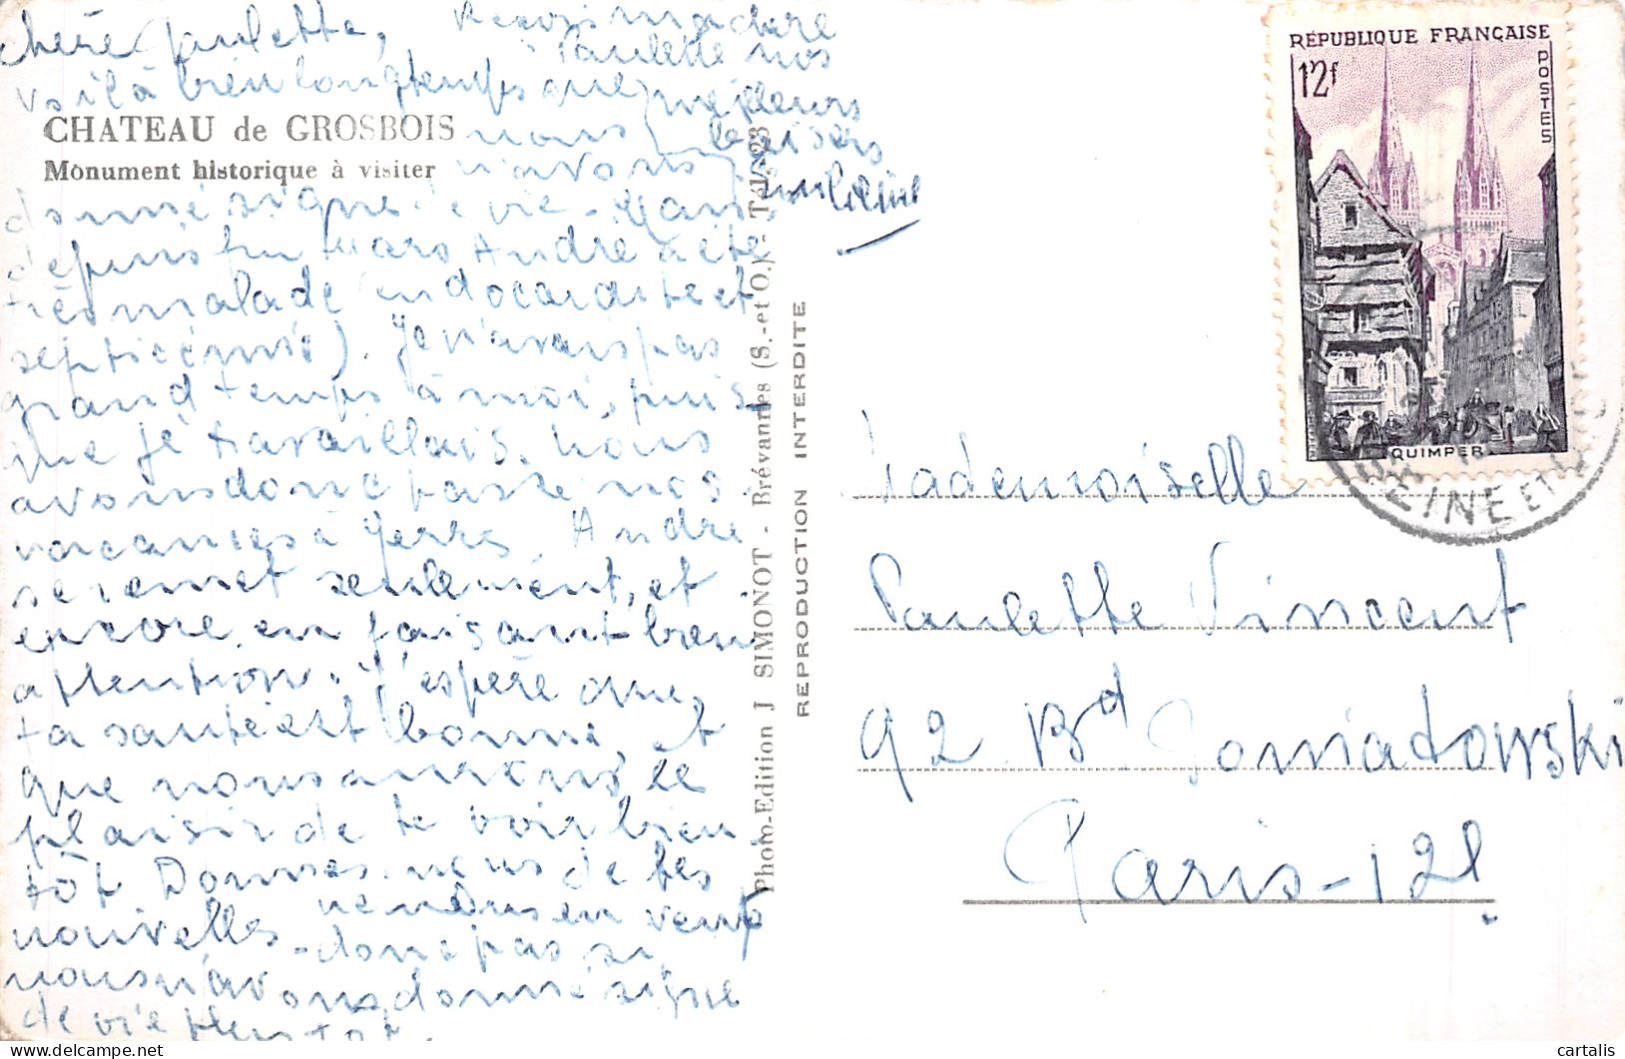 Chère Paulette,
voilà bien longtemps que
nous
n'avons
donné signe de vie - Mais
depuis fin Mars André a été
très malade (endocardite et
septicémie). Je n'avais pas
grand temps à moi, puis
que je travaillais. Nous
avons donc passé nos
vacances à Yerres. André
se remet seulement, et
encore en faisant bien
attention. J'espère que
ta santé est bonne, et
que nous aurons le
plaisir de te voir bien
tôt. Donnes-nous de tes
nouvelles - ne nous en veux
donc pas si
nous n'avons donné signe
de vie plus tôt.
Reçois ma chère
Paulette nos
meilleurs
baisers
CHATEAU de GROSBOIS
Monument historique à visiter
Photo-Edition J SIMONOT - Brévannes (S.-et O.) - Tél. 23
REPRODUCTION INTERDITE
RÉPUBLIQUE FRANÇAISE
12f
POSTES
QUIMPER
SEINE ET OISE
Mademoiselle
Paulette Vincent
92 Bd Poniatowski
Paris-12e
cartalis